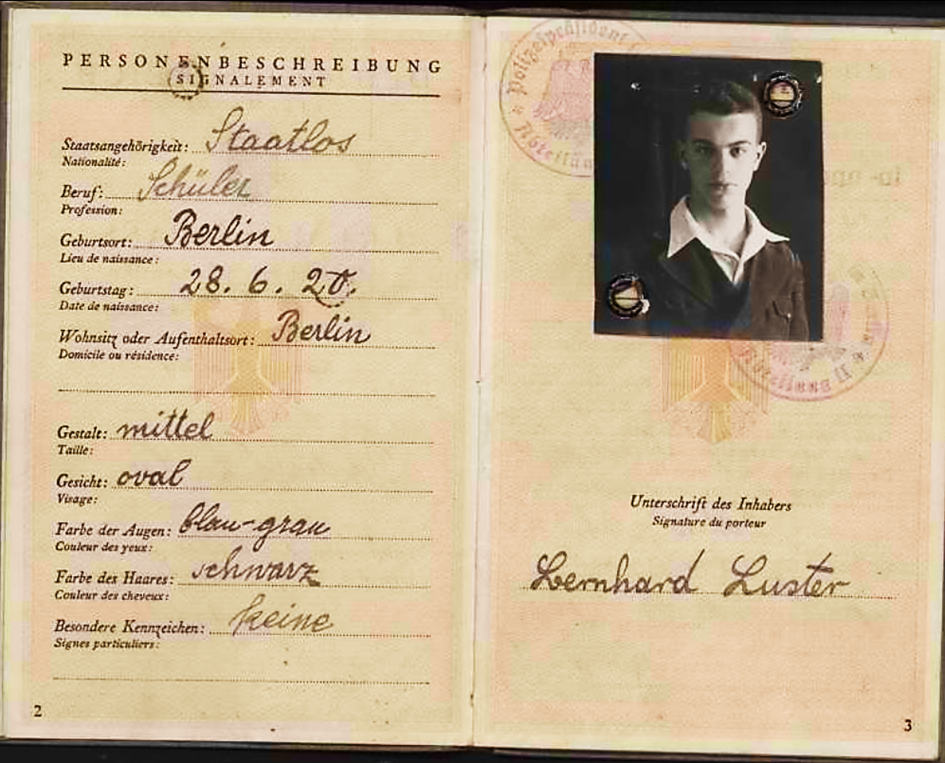 PERSONENBESCHREIBUNG
SIGNALEMENT
Staatsangehörigkeit: Staatlos
Nationalité:
Beruf: Schüler
Profession:
Geburtsort: Berlin
Lieu de naissance:
Geburtstag: 28. 6. 20.
Date de naissance:
Wohnsitz oder Aufenthaltsort: Berlin
Domicile ou résidence:
Gestalt: mittel
Taille:
Gesicht: oval
Visage:
Farbe der Augen: blau-grau
Couleur des yeux:
Farbe des Haares: schwarz
Couleur des cheveux:
Besondere Kennzeichen: keine
Signes particuliers:
2
Polizeipräsident
Abteilung II
Berlin
Unterschrift des Inhabers
Signature du porteur
Bernhard Luster
3